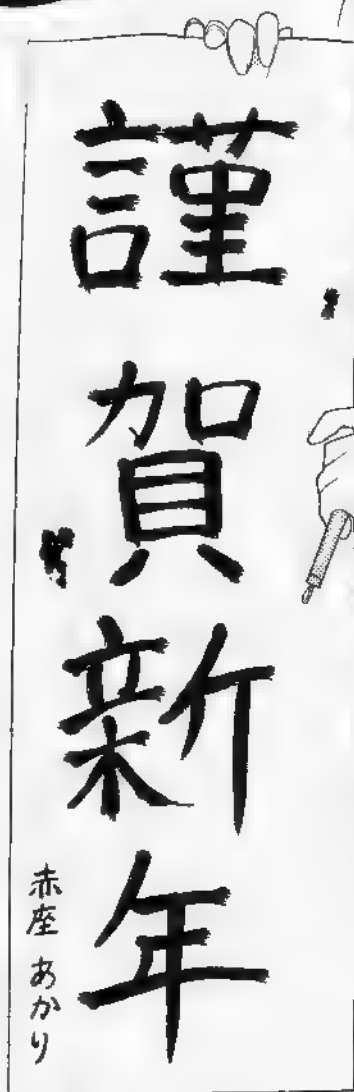 謹賀新年
赤座 あかり